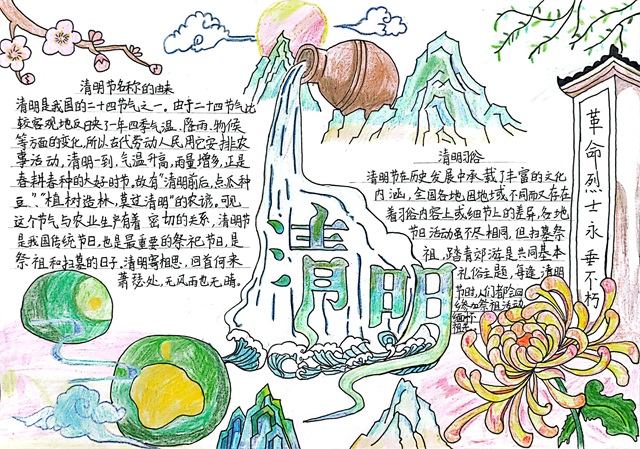 清明节名称的由来
清明是我国的二十四节气之一。由于二十四节气比
较客观地反映了一年四季气温、降雨、物候
等方面的变化,所以古代劳动人民用它安排农
事活动,清明一到,气温升高,雨量增多,正是
春耕春种的大好时节,故有"清明前后,点瓜种
豆"."植树造林,莫过清明"的农谚,可见
这个节气与农业生产有着密切的关系,清明节
是我国传统节日,也是最重要的祭祀节日,是
祭祖和扫墓的日子.清明寄相思,回首何来
萧瑟处,无风雨也无晴。
清明习俗
清明节在历史发展中承载了丰富的文化
内涵,全国各地因地域不同而又存在
着习俗内容上或细节上的差异,各地
节日活动虽不尽相同,但扫墓祭
祖,踏青郊游是共同基本
礼俗主题,每逢清明
节时,人们都会回
祭祖活动
缅怀
祖先
清明
革命烈士永垂不朽